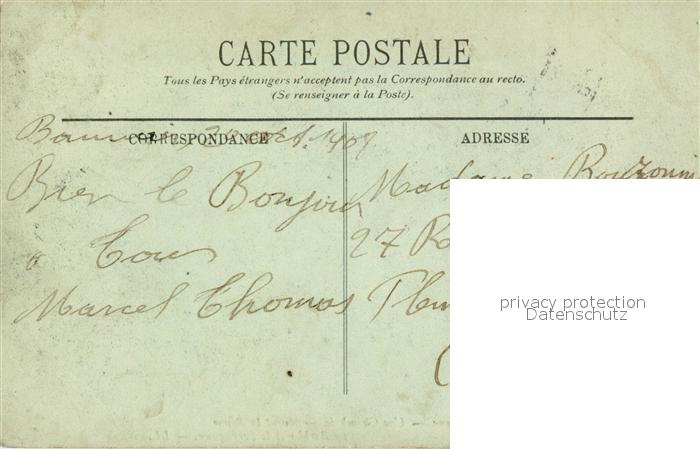 CARTE POSTALE
Tous les Pays étrangers n'acceptent pas la Correspondance au recto.
(Se renseigner à la Poste).
CORRESPONDANCE
Bien le Bonjour
a Tous
Marcel Thomas
ADRESSE
Madame
27
privacy protection
Datenschutz